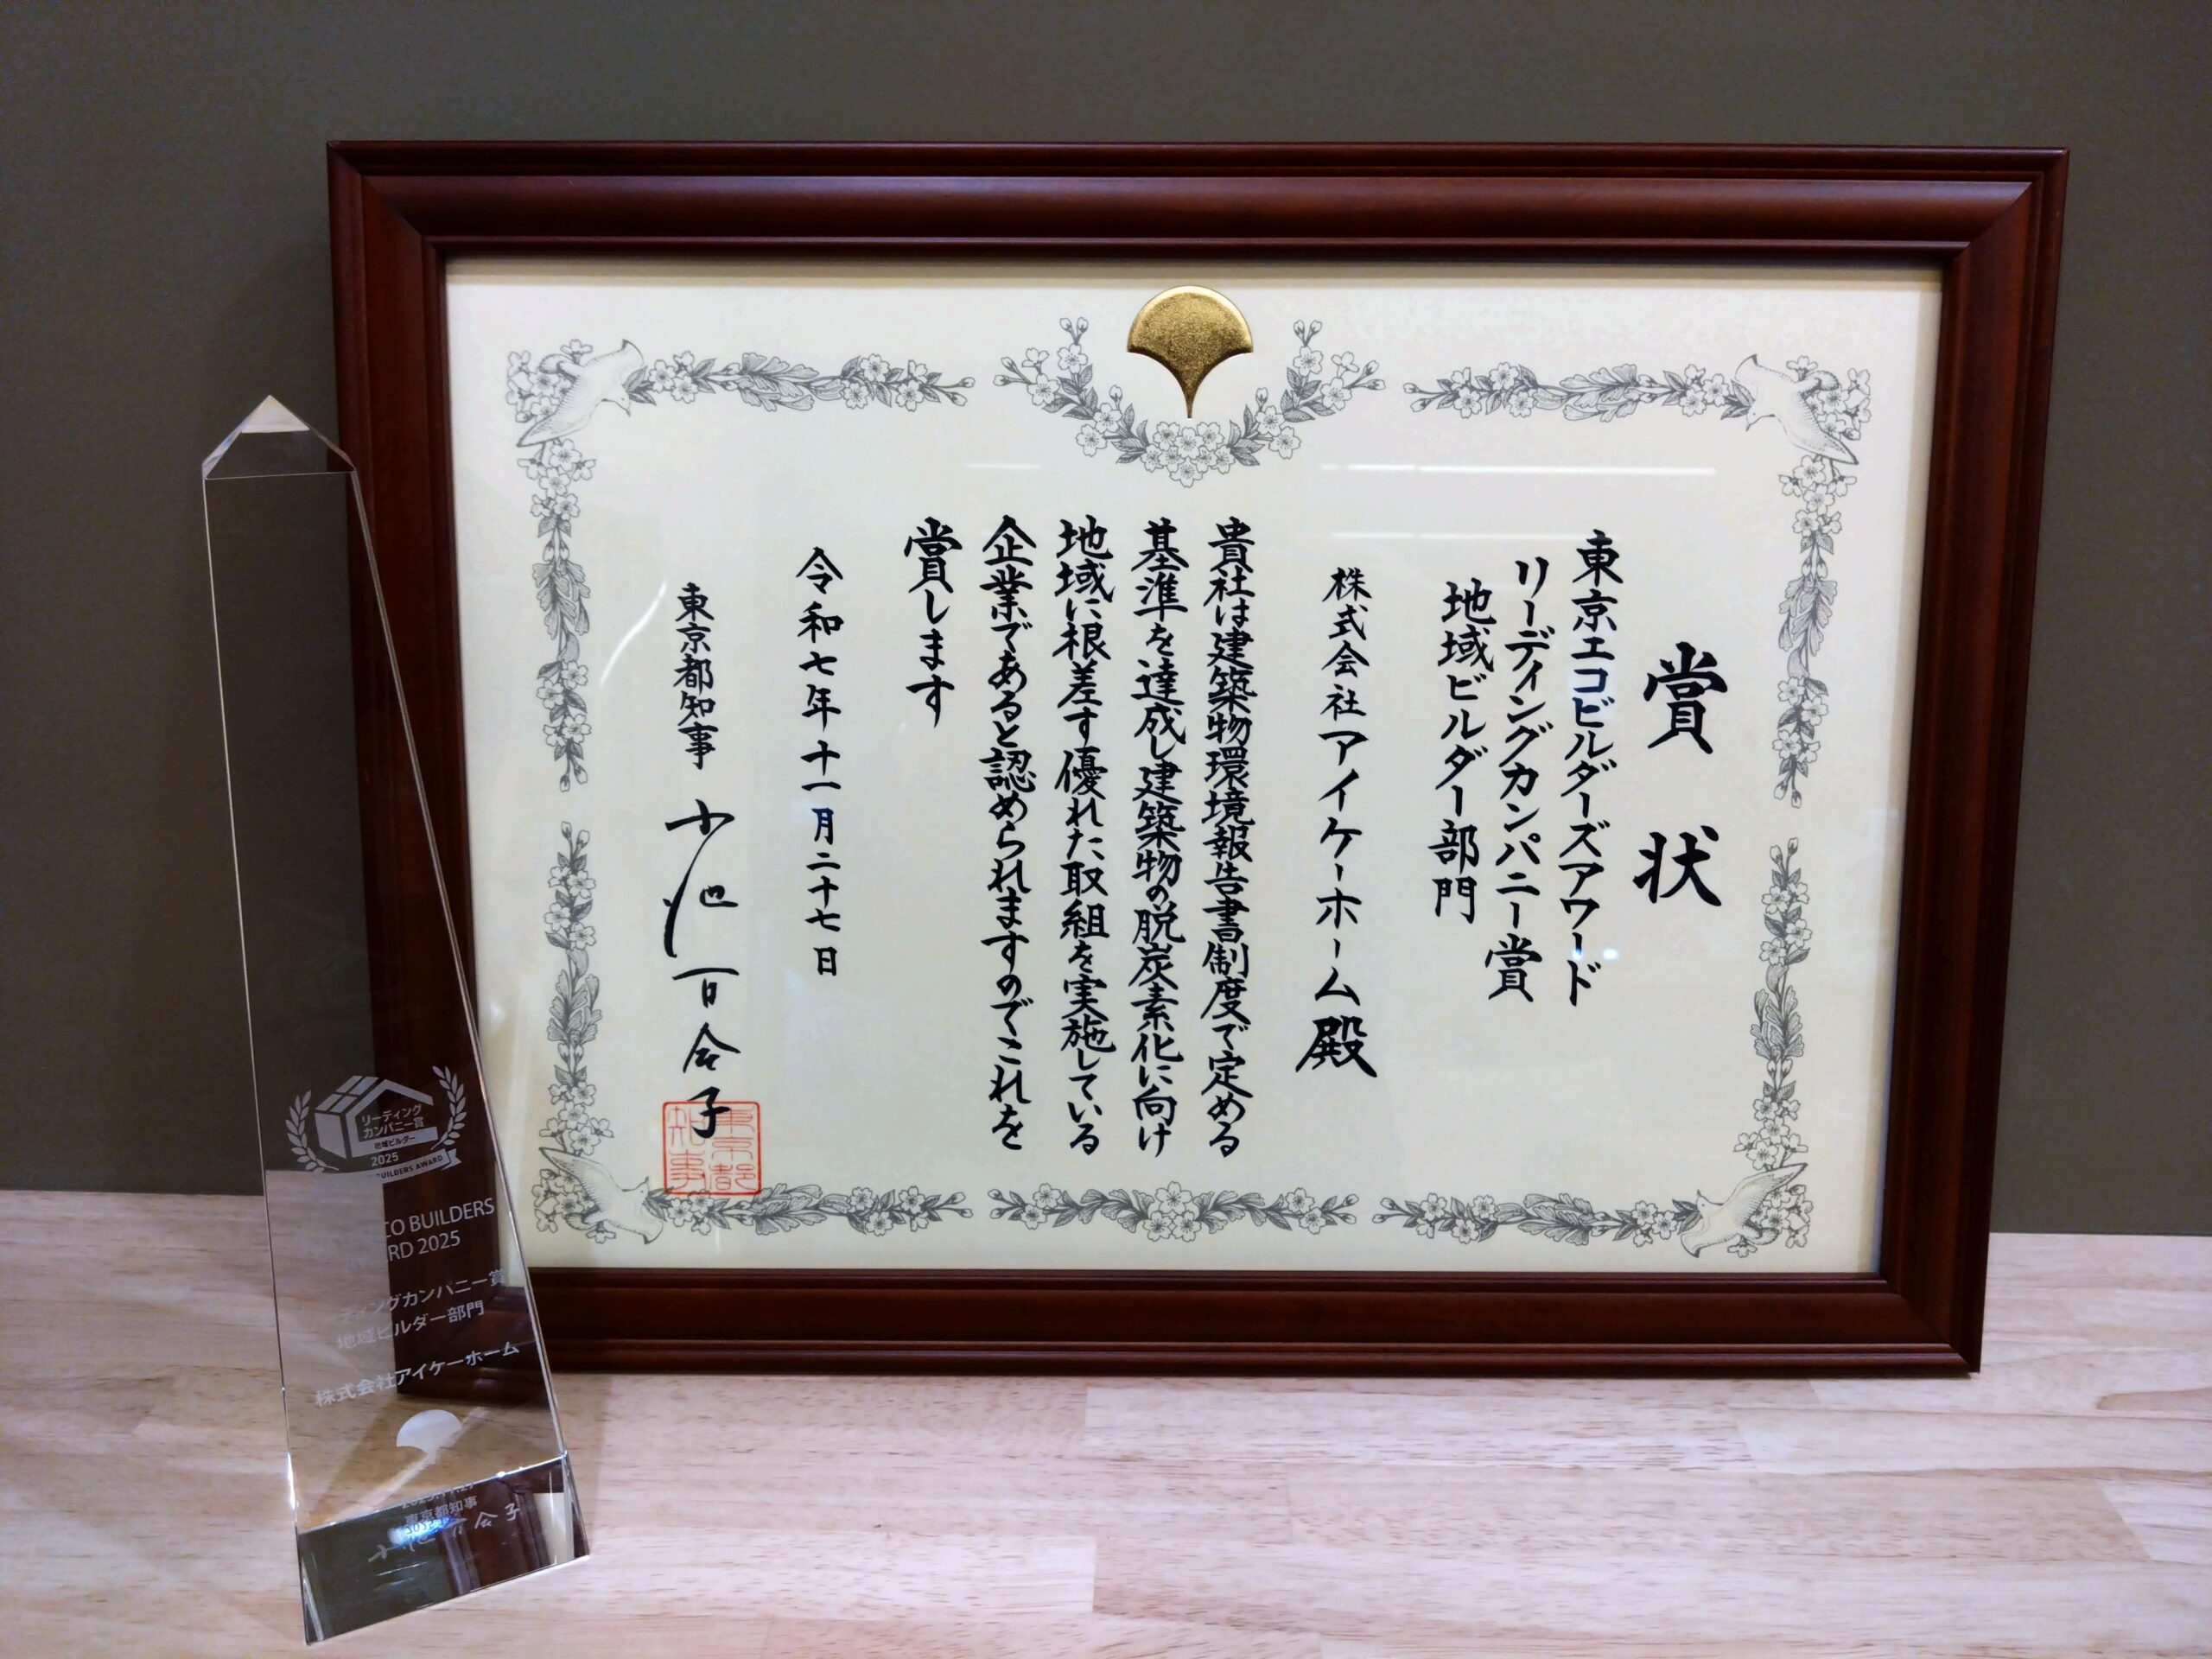 賞状
東京エコビルダーズアワード
リーディングカンパニー賞
地域ビルダー部門
株式会社アイケーホーム殿
貴社は建築物環境報告書制度で定める
基準を達成し建築物の脱炭素化に向け
地域に根差す優れた取組を実施している
企業であると認められますのでこれを
賞します
令和七年十一月二十七日
東京都知事 小池百合子
東京都
知事
リーディング
カンパニー賞
地域ビルダー
2025
BUILDERS AWARD
CO BUILDERS
RD 2025
ディングカンパニー賞
地域ビルダー部門
株式会社アイケーホーム
東京都知事
小池百合子